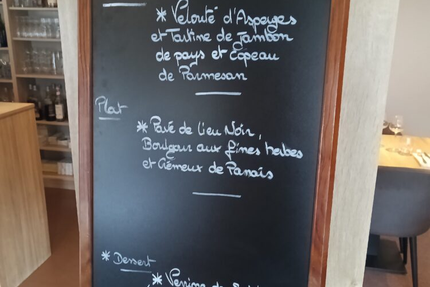 * Velouté d'Asperges
et Tartine de Jambon
de pays et Copeau
de Parmesan
Plat
* Pavé de Lieu Noir,
Boulgour aux fines herbes
et Crémeux de Panais
* Dessert
* Verrine de